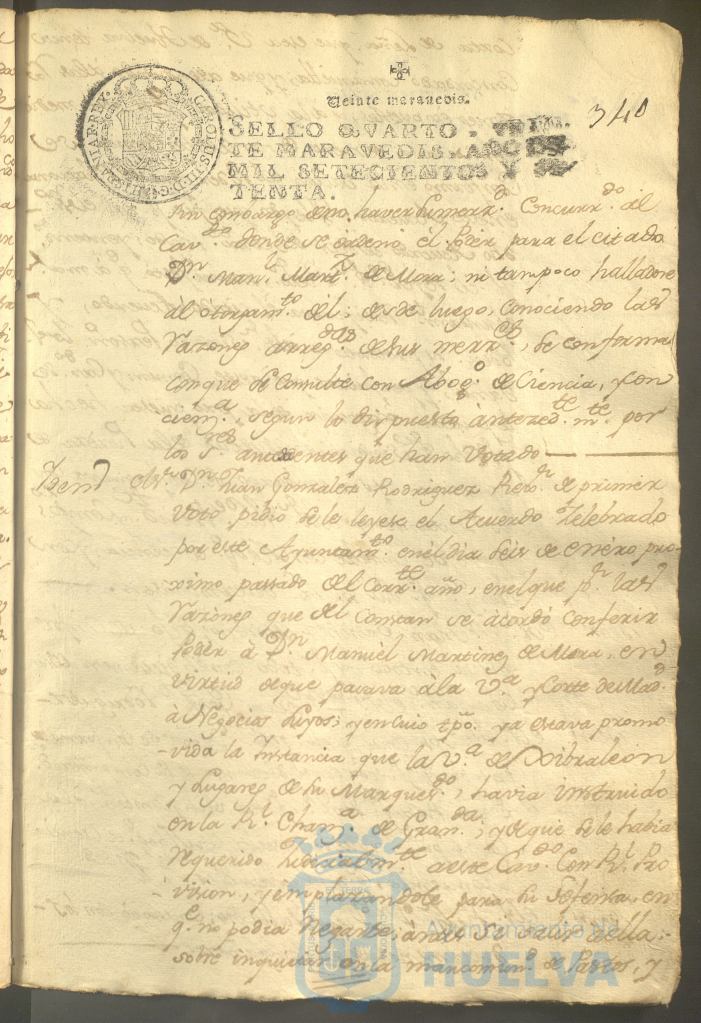 340
Veinte maravedis.
SELLO QVARTO, VEIN-
TE MARAVEDIS, AÑO DE
MIL SETECIENTOS Y SE-
TENTA.
CAROLUS III D G HISPANIAR REX
Sin embargo de no haver su merz.d Concurr.do al
Cav.do donde se ordenó el Poder para el citado
D.n Man.l Mart.z de Mora; ni tampoco halladose
al otorgam.to del; desde luego, conociendo las
razones arreg.das de sus merz.es, se conforma
con que se Consulte con Abog.o de Ciencia, y con
ciem.a, segun lo dispuesto antezed.te m.te por
los S.res antecedentes que han Votado
Iten el s.r D.n Juan Gonzalez Rodriguez Rex.r de primer
voto pidio se le leyese el Acuerdo Zelebrado
por este Ayuntam.to en el dia seis de enero pro-
ximo passado del corr.te año, en el que p.r las
razones que del Constan se acordó Conferir
Poder á D.n Manuel Martinez de Mora, en
virtud de que pasava á la V.a y Corte de Mad.d
á Negocios suyos; y en cuio tpo. ya estava promo
vida la Instancia que la V.a de Gibraleon
y Lugares de su Marques.do, havia instruido
en la R.l Chanz.a de Gran.da; y de que se le habia
requerido a este Cav.do Con R.l Pro
vision, y emplazandole para su defensa, en
q.e no podia negarse, á
sobre inquietar en la mancomun.d de Pastos, y
Ayuntamiento de
HUELVA